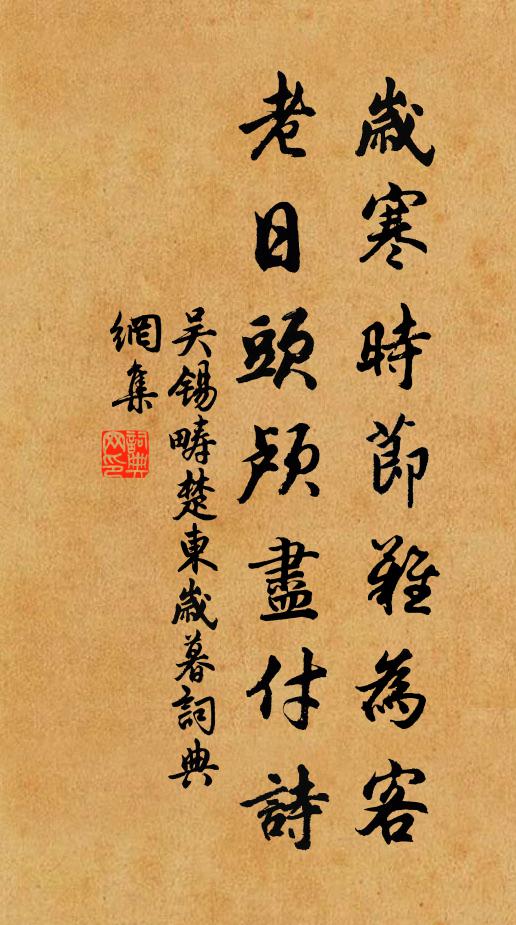 歲寒時節難為客
老日頭顱盡付詩
吳錫疇楚東歲暮詞典
網集
詞典
网印